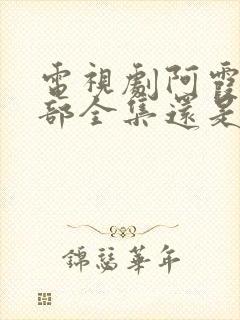 電視劇阿霞
部全集還是
錦瑟華年